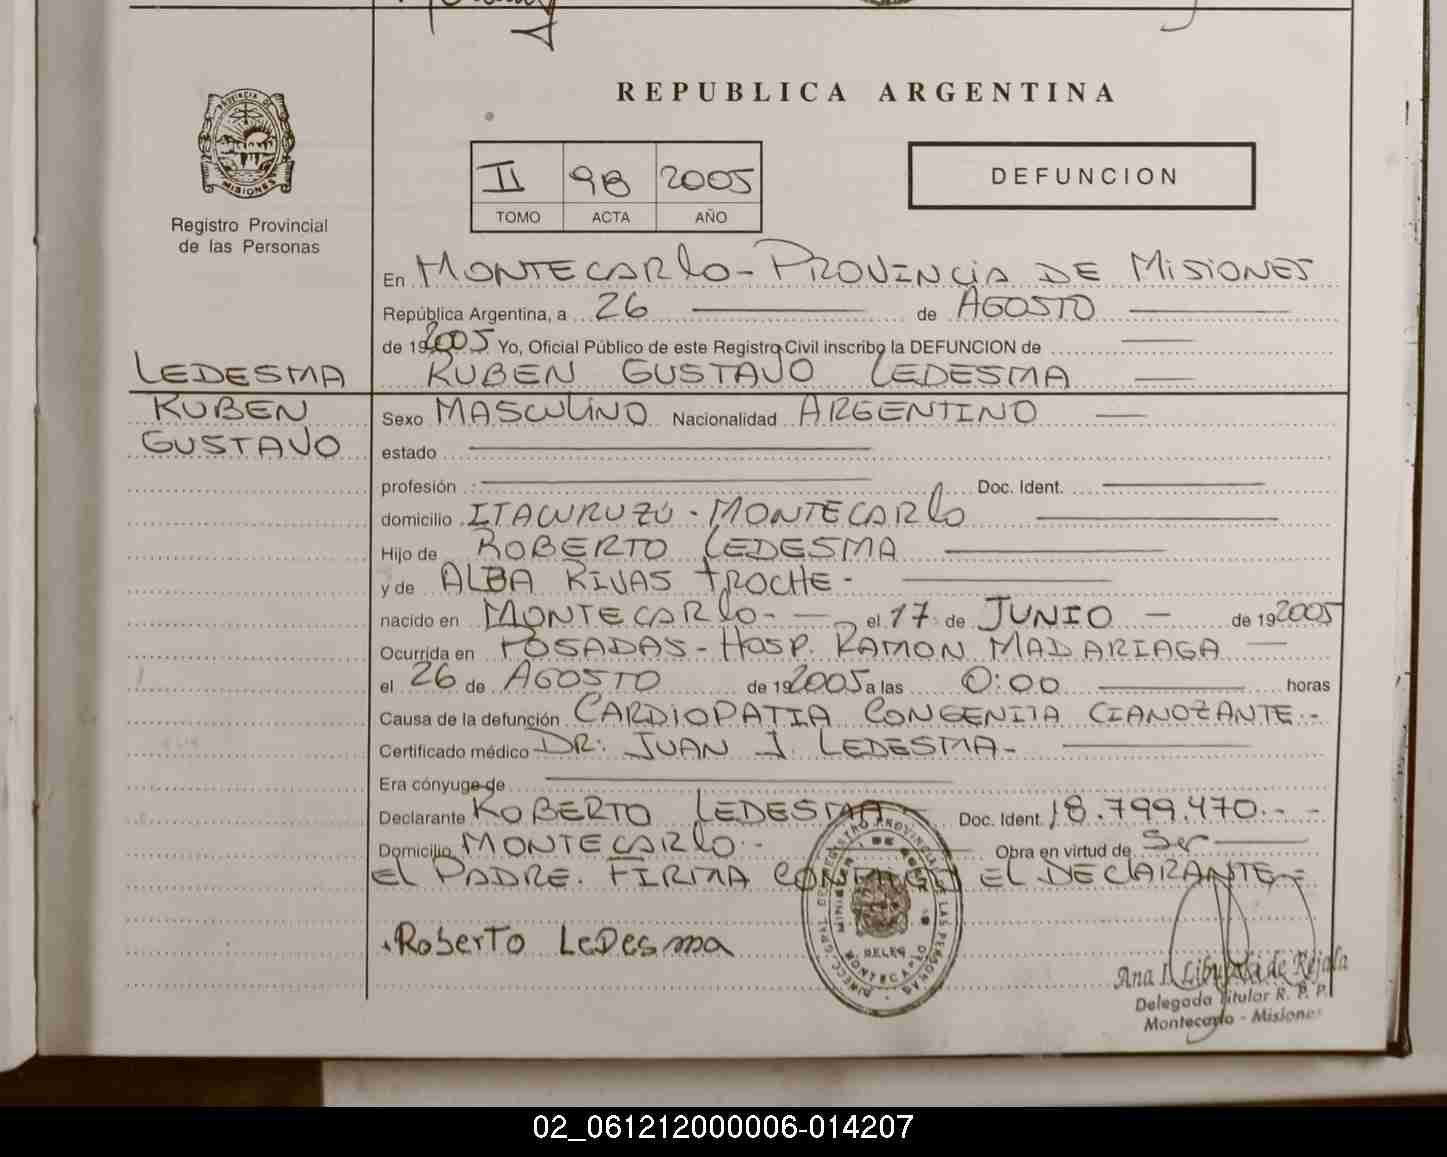 REPUBLICA ARGENTINA
PROVINCIA DE
MISIONES
Registro Provincial
de las Personas
II 98 2005
TOMO ACTA AÑO
DEFUNCION
En MONTECARLO - PROVINCIA DE MISIONES
República Argentina, a 26 de AGOSTO
de 192005 Yo, Oficial Público de este Registro Civil inscribo la DEFUNCION de
LEDESMA
RUBEN GUSTAVO LEDESMA
RUBEN
GUSTAVO
Sexo MASCULINO Nacionalidad ARGENTINO
estado
profesión Doc. Ident.
domicilio ITACURUZU - MONTECARLO
Hijo de ROBERTO LEDESMA
y de ALBA RIVAS TROCHE -
nacido en MONTECARLO - el 17 de JUNIO - de 192005
Ocurrida en POSADAS - HOSP. RAMON MADARIAGA
el 26 de AGOSTO de 192005 a las 0:00 horas
Causa de la defunción CARDIOPATIA CONGENITA CIANOZANTE.-
Certificado médico DR: JUAN J. LEDESMA-
Era cónyuge de
Declarante ROBERTO LEDESMA Doc. Ident. 18.799.470.- -
Domicilio MONTECARLO.- Obra en virtud de Ser
EL PADRE. FIRMA CONMIGO EL DECLARANTE =
Roberto LeDesma
Delegada Titular R. P. P.
Montecarlo - Misiones
02_061212000006-014207